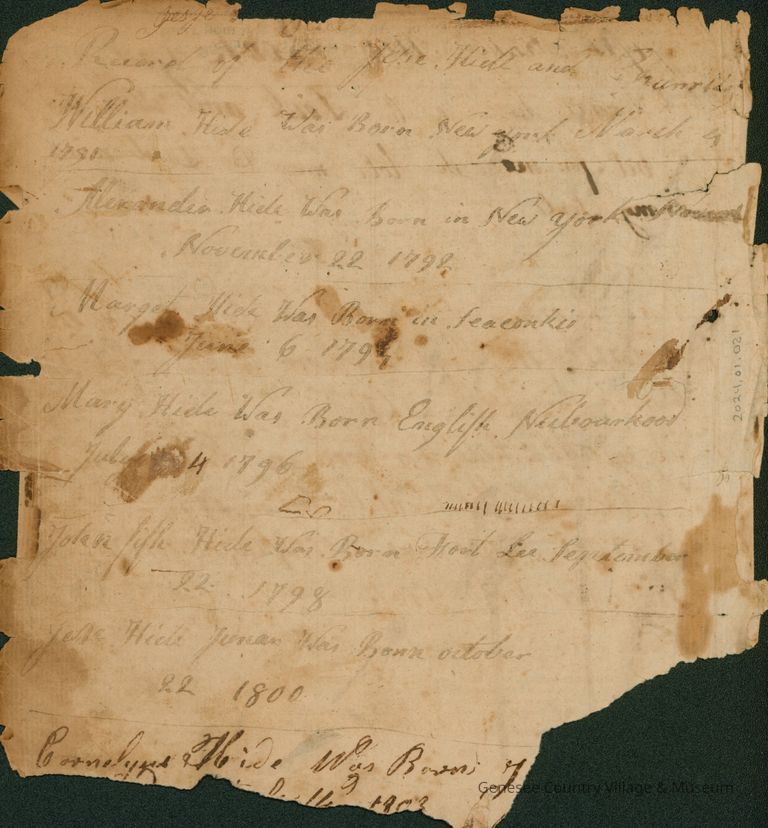 Record of the Jese Hide and
William Hide Was Born New york March 9
Alexander Hide Was Born in New york
November 22 1792
Margot Hide Was Born in
June 6 179
Mary Hide Was Born English Niebourhood
July 4 1796
John fish Hide Was Born Foort Lee Septtember
22 1798
Jese Hide Junar Was Born october
22 1800
Cornelyus Hide Was Born
1803
2024.01.021
Genesee Country Village & Museum